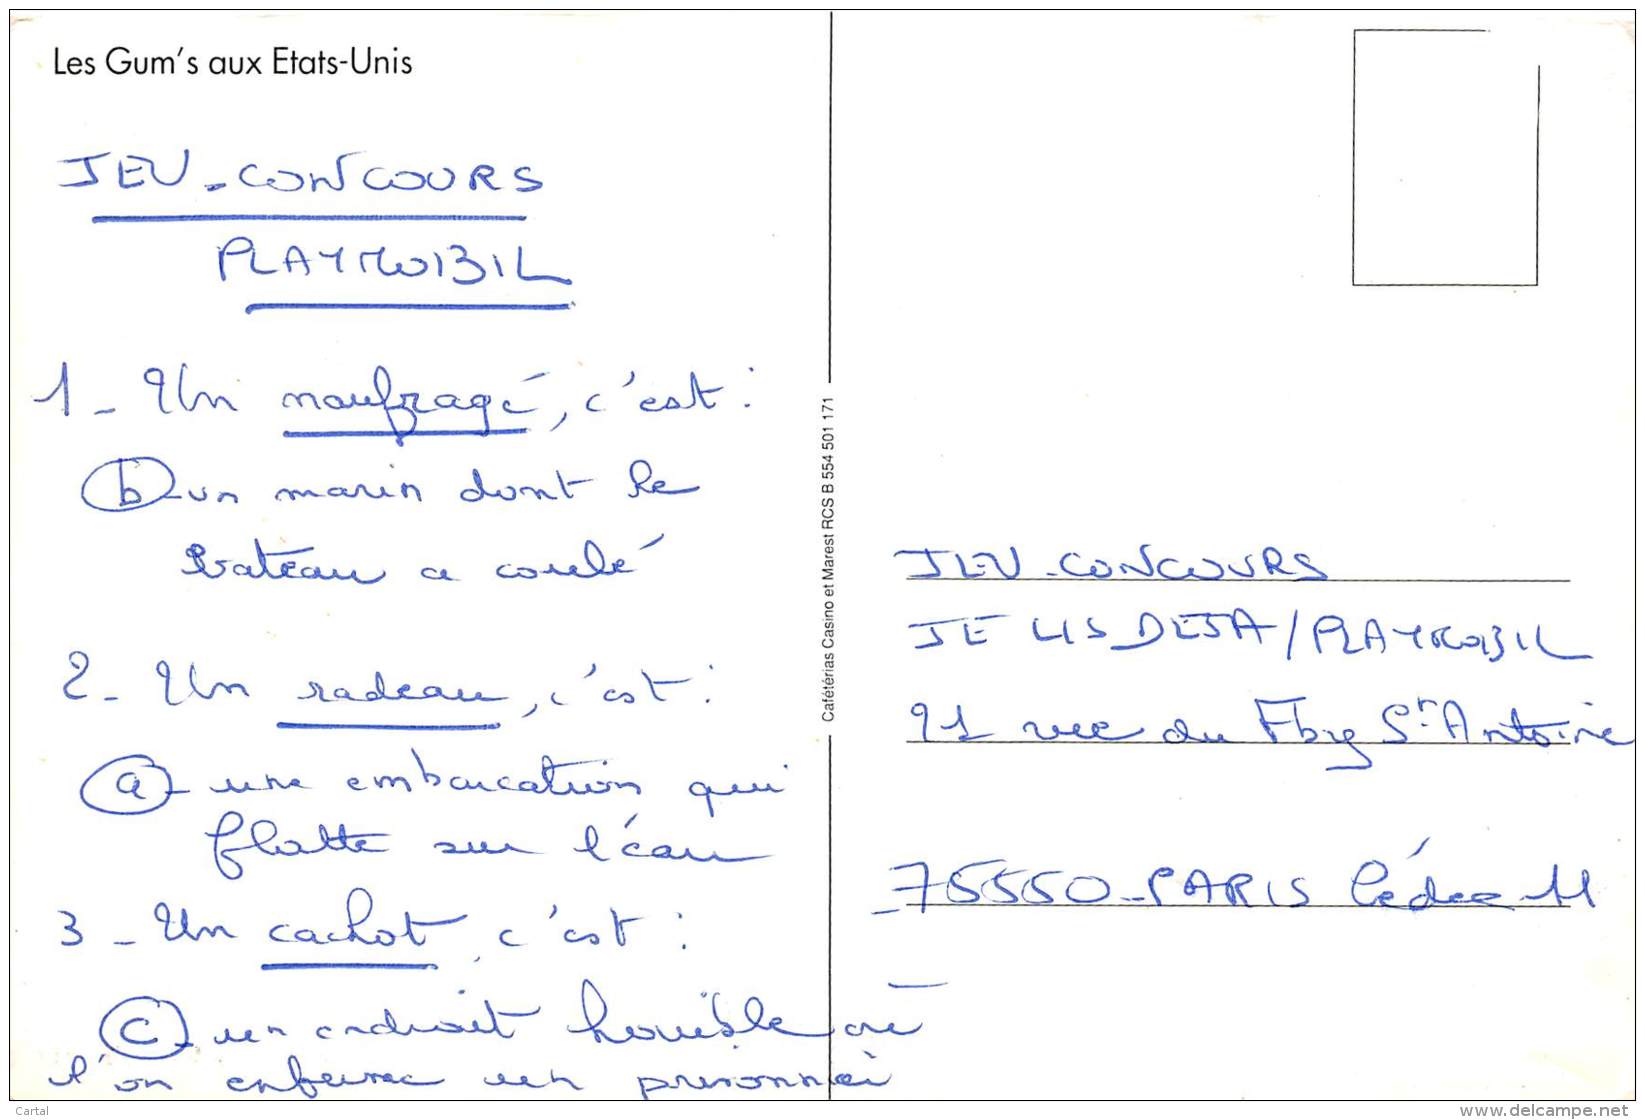 Les Gum's aux Etats-Unis
JEU-CONCOURS
PLAYMOBIL
1- Un naufragé, c'est :
b-un marin dont le
bateau a coulé
2- Un radeau, c'est :
a- une embarcation qui
flotte sur l'eau
3- Un cachot, c'est :
c-un endroit horrible où
l'on enferme un prisonnier
Cafétérias Casino et Marest RCS B 554 501 171
JEU-CONCOURS
JE LIS DEJA/PLAYMOBIL
91 rue du Fbg St Antoine
75550-PARIS Cédex 11
Cartal
delcampe.net